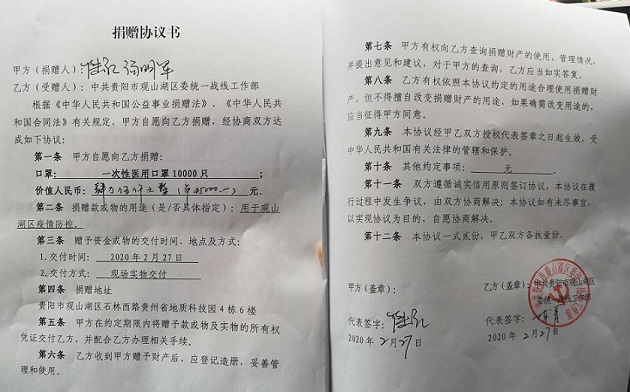 捐赠协议书
甲方（捐赠人）：
乙方（受赠人）：中共贵阳市观山湖区委统一战线工作部
根据《中华人民共和国公益事业捐赠法》、《中华人民共
和国合同法》有关规定，甲方自愿向乙方捐赠，经协商双方达
成如下协议：
第一条 甲方自愿向乙方捐赠：
口罩： 一次性医用口罩 10000 只 ；
价值人民币： 元。
第二条 捐赠款或物的用途（是/否具体指定）：用于观山
湖区疫情防控。
第三条 赠予资金或物的交付时间、地点及方式：
1.交付时间： 2020 年 2 月 27 日
2.交付方式： 现场实物交付
第四条 捐赠地址
贵阳市观山湖区石林西路贵州省地质科技园 4 栋 6 楼
第五条 甲方在约定期限内将赠予款或物及实物的所有权
凭证交付乙方，并配合乙方办理相关手续。
第六条 乙方收到甲方赠予财产后，应登记造册，妥善管
理和使用。
第七条 甲方有权向乙方查询捐赠财产的使用，管理情况，
并提出意见和建议，对于甲方的查询，乙方应当如实答复。
第八条 乙方有权依照本协议约定的用途合理使用捐赠财
产，但不得擅自改变捐赠财产的用途，如果确需改变用途的，
应当征得甲方同意。
第九条 本协议经甲乙双方授权代表签章之日起生效，受
中华人民共和国有关法律的管辖和保护。
第十条 其他约定事项： 无 。
第十一条 双方遵循诚实信用原则签订协议，本协议在履
行过程中发生争议，由双方协商解决；本协议如有未尽事宜，
以实现协议为目的，自愿协商解决。
第十二条 本协议一式贰份，甲乙双方各执壹份。
甲方（盖章）：
乙方（盖章）：中共贵阳市观山湖区
委统一战线工作部
代表签字：
代表签字：
2020 年 2月27日
2020 年 2月27日